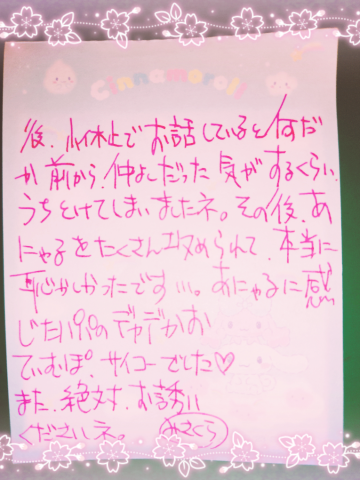 cinnamoroll
後、小休止でお話していると何だ
か前から、仲よしだった気がするくらい、
うちとけてしまいましたネ。その後、あ
にゃるをたくさん攻められて、本当に
恥かしかったです!!!。あにゃるに感
じたパパのデカデカお
ていむぽ、サイコーでした♡
また、絶対、お誘い
くださいネ。 みさくら